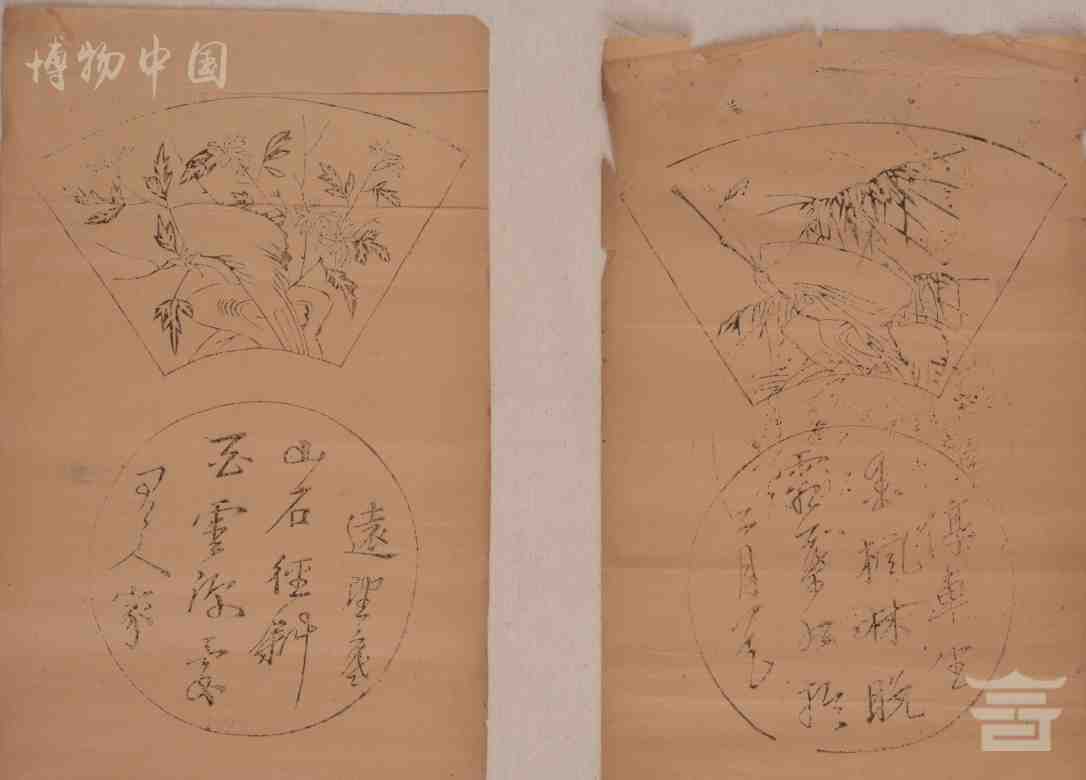 博物中国
遠望寒
山石徑斜
白雲深處
人家
停車坐
楓林晚
霜葉
二月花